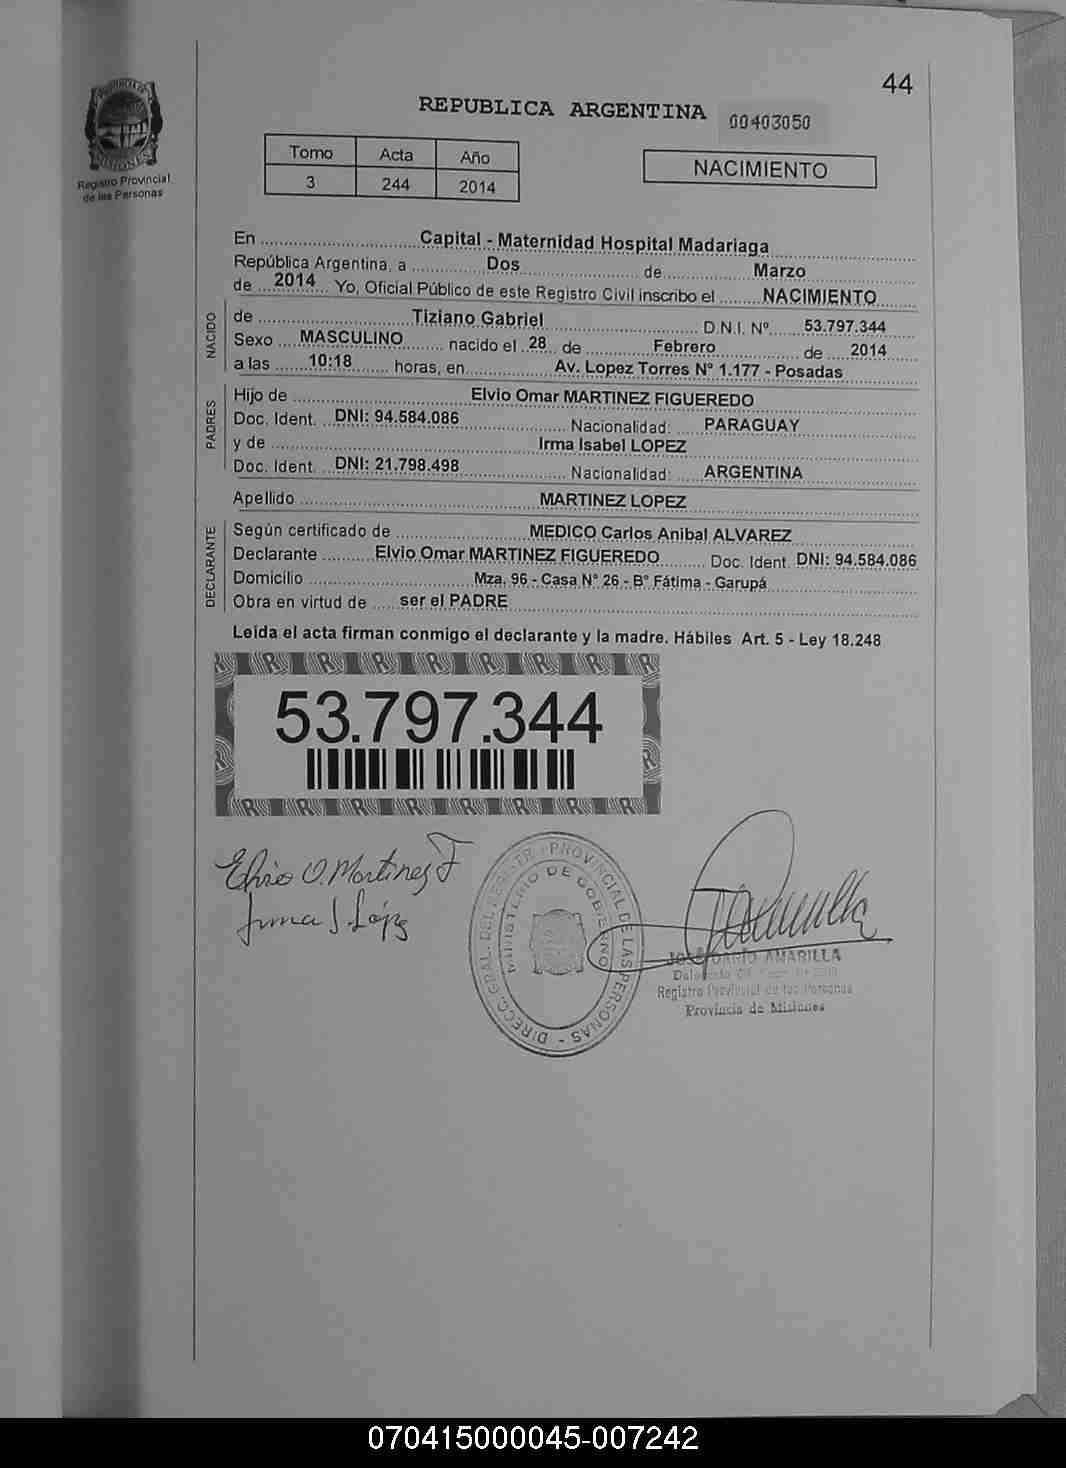 44
REPUBLICA ARGENTINA
00403050
PROVINCIA DE
MISIONES
Registro Provincial
de las Personas
Tomo Acta Año
3 244 2014
NACIMIENTO
En Capital - Maternidad Hospital Madariaga
República Argentina, a Dos de Marzo
de 2014 Yo, Oficial Público de este Registro Civil inscribo el NACIMIENTO
NACIDO
de Tiziano Gabriel D.N.I. Nº 53.797.344
Sexo MASCULINO nacido el 28 de Febrero de 2014
a las 10:18 horas, en Av. Lopez Torres N° 1.177 - Posadas
PADRES
Hijo de Elvio Omar MARTINEZ FIGUEREDO
Doc. Ident. DNI: 94.584.086 Nacionalidad: PARAGUAY
y de Irma Isabel LOPEZ
Doc. Ident. DNI: 21.798.498 Nacionalidad: ARGENTINA
Apellido MARTINEZ LOPEZ
DECLARANTE
Según certificado de MEDICO Carlos Anibal ALVAREZ
Declarante Elvio Omar MARTINEZ FIGUEREDO Doc. Ident. DNI: 94.584.086
Domicilio Mza. 96 - Casa N° 26 - B° Fátima - Garupá
Obra en virtud de ser el PADRE
Leída el acta firman conmigo el declarante y la madre. Hábiles Art. 5 - Ley 18.248
53.797.344
Elvio O. Martinez F
Irma I. López
DIRECC. GRAL. DEL REGISTR. PROVINCIAL DE LAS PERSONAS -
MINISTERIO DE GOBIERNO
DARÍO AMARILLA
Registro Provincial de las Personas
Provincia de Misiones
070415000045-007242